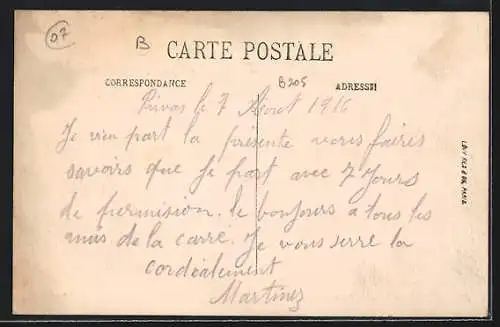 07
B
CARTE POSTALE
CORRESPONDANCE
B205
ADRESSE
Privas le 7 Aout 1916
Je vien part la présente vous faires
savoirs que je part avec 7 Jours
de permision. le bonjours a tous les
amis de la carré. Je vous serre la
cordialement
Martinez